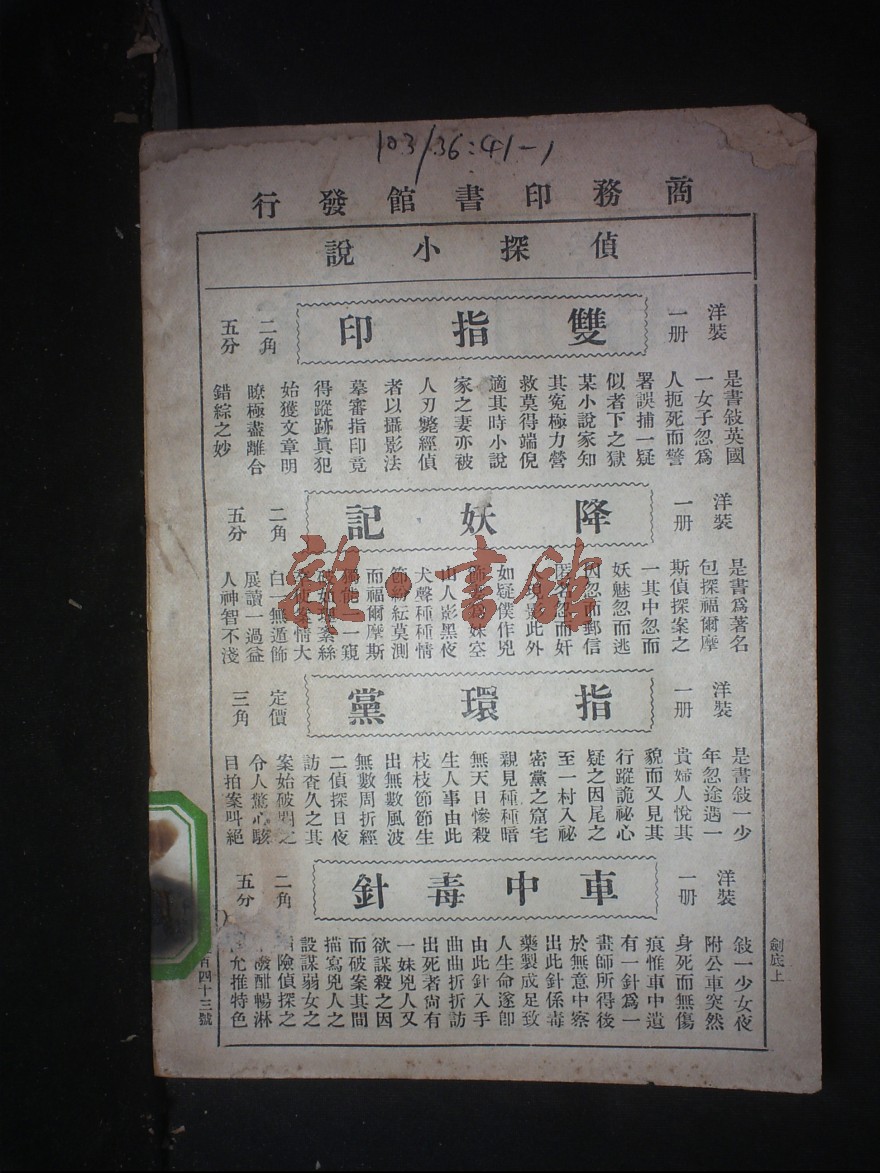 103/36:41-1
商務印書館發行
偵探小說
洋裝
一册
雙指印
二角
五分
是書敍英國
一女子忽爲
人扼死而警
署誤捕一疑
似者下之獄
某小說家知
其寃極力營
救莫得端倪
適其時小說
家之妻亦被
人刃斃經偵
者以攝影法
摹審指印竟
得蹤跡眞犯
始獲文章明
瞭極盡離合
錯綜之妙
洋裝
一册
降妖記
二角
五分
是書爲著名
包探福爾摩
斯偵探案之
一其中忽而
妖魅忽而逃
因忽而郵信
匿名忽而奸
人現影此外
如疑僕作兇
飾妻爲妹空
山人影黑夜
犬聲種種情
節紛紜莫測
而福爾摩斯
獨能一一窺
破如理紊絲
案情大
白一無遁飾
展讀一過益
人神智不淺
洋裝
一册
指環黨
定價
三角
是書敍一少
年忽途遇一
貴婦人悅其
貌而又見其
行蹤詭祕心
疑之因尾之
至一村入祕
密黨之窟宅
親見種種暗
無天日慘殺
生人事由此
枝枝節節生
出無數風波
無數周折經
二偵探日夜
訪查久之其
案始破閱之
令人驚心駭
目拍案叫絕
洋裝
一册
車中毒針
二角
五分
敍一少女夜
附公車突然
身死而無傷
痕惟車中遺
有一針爲一
畫師所得後
於無意中察
出此針係毒
藥製成足致
人生命遂卽
由此針入手
曲曲折折訪
出死者尙有
一妹兇人又
欲謀殺之因
而破案其間
描寫兇人之
設謀弱女之
險偵探之
酣暢淋
允推特色
劍底上
百四十三號
雜·書館